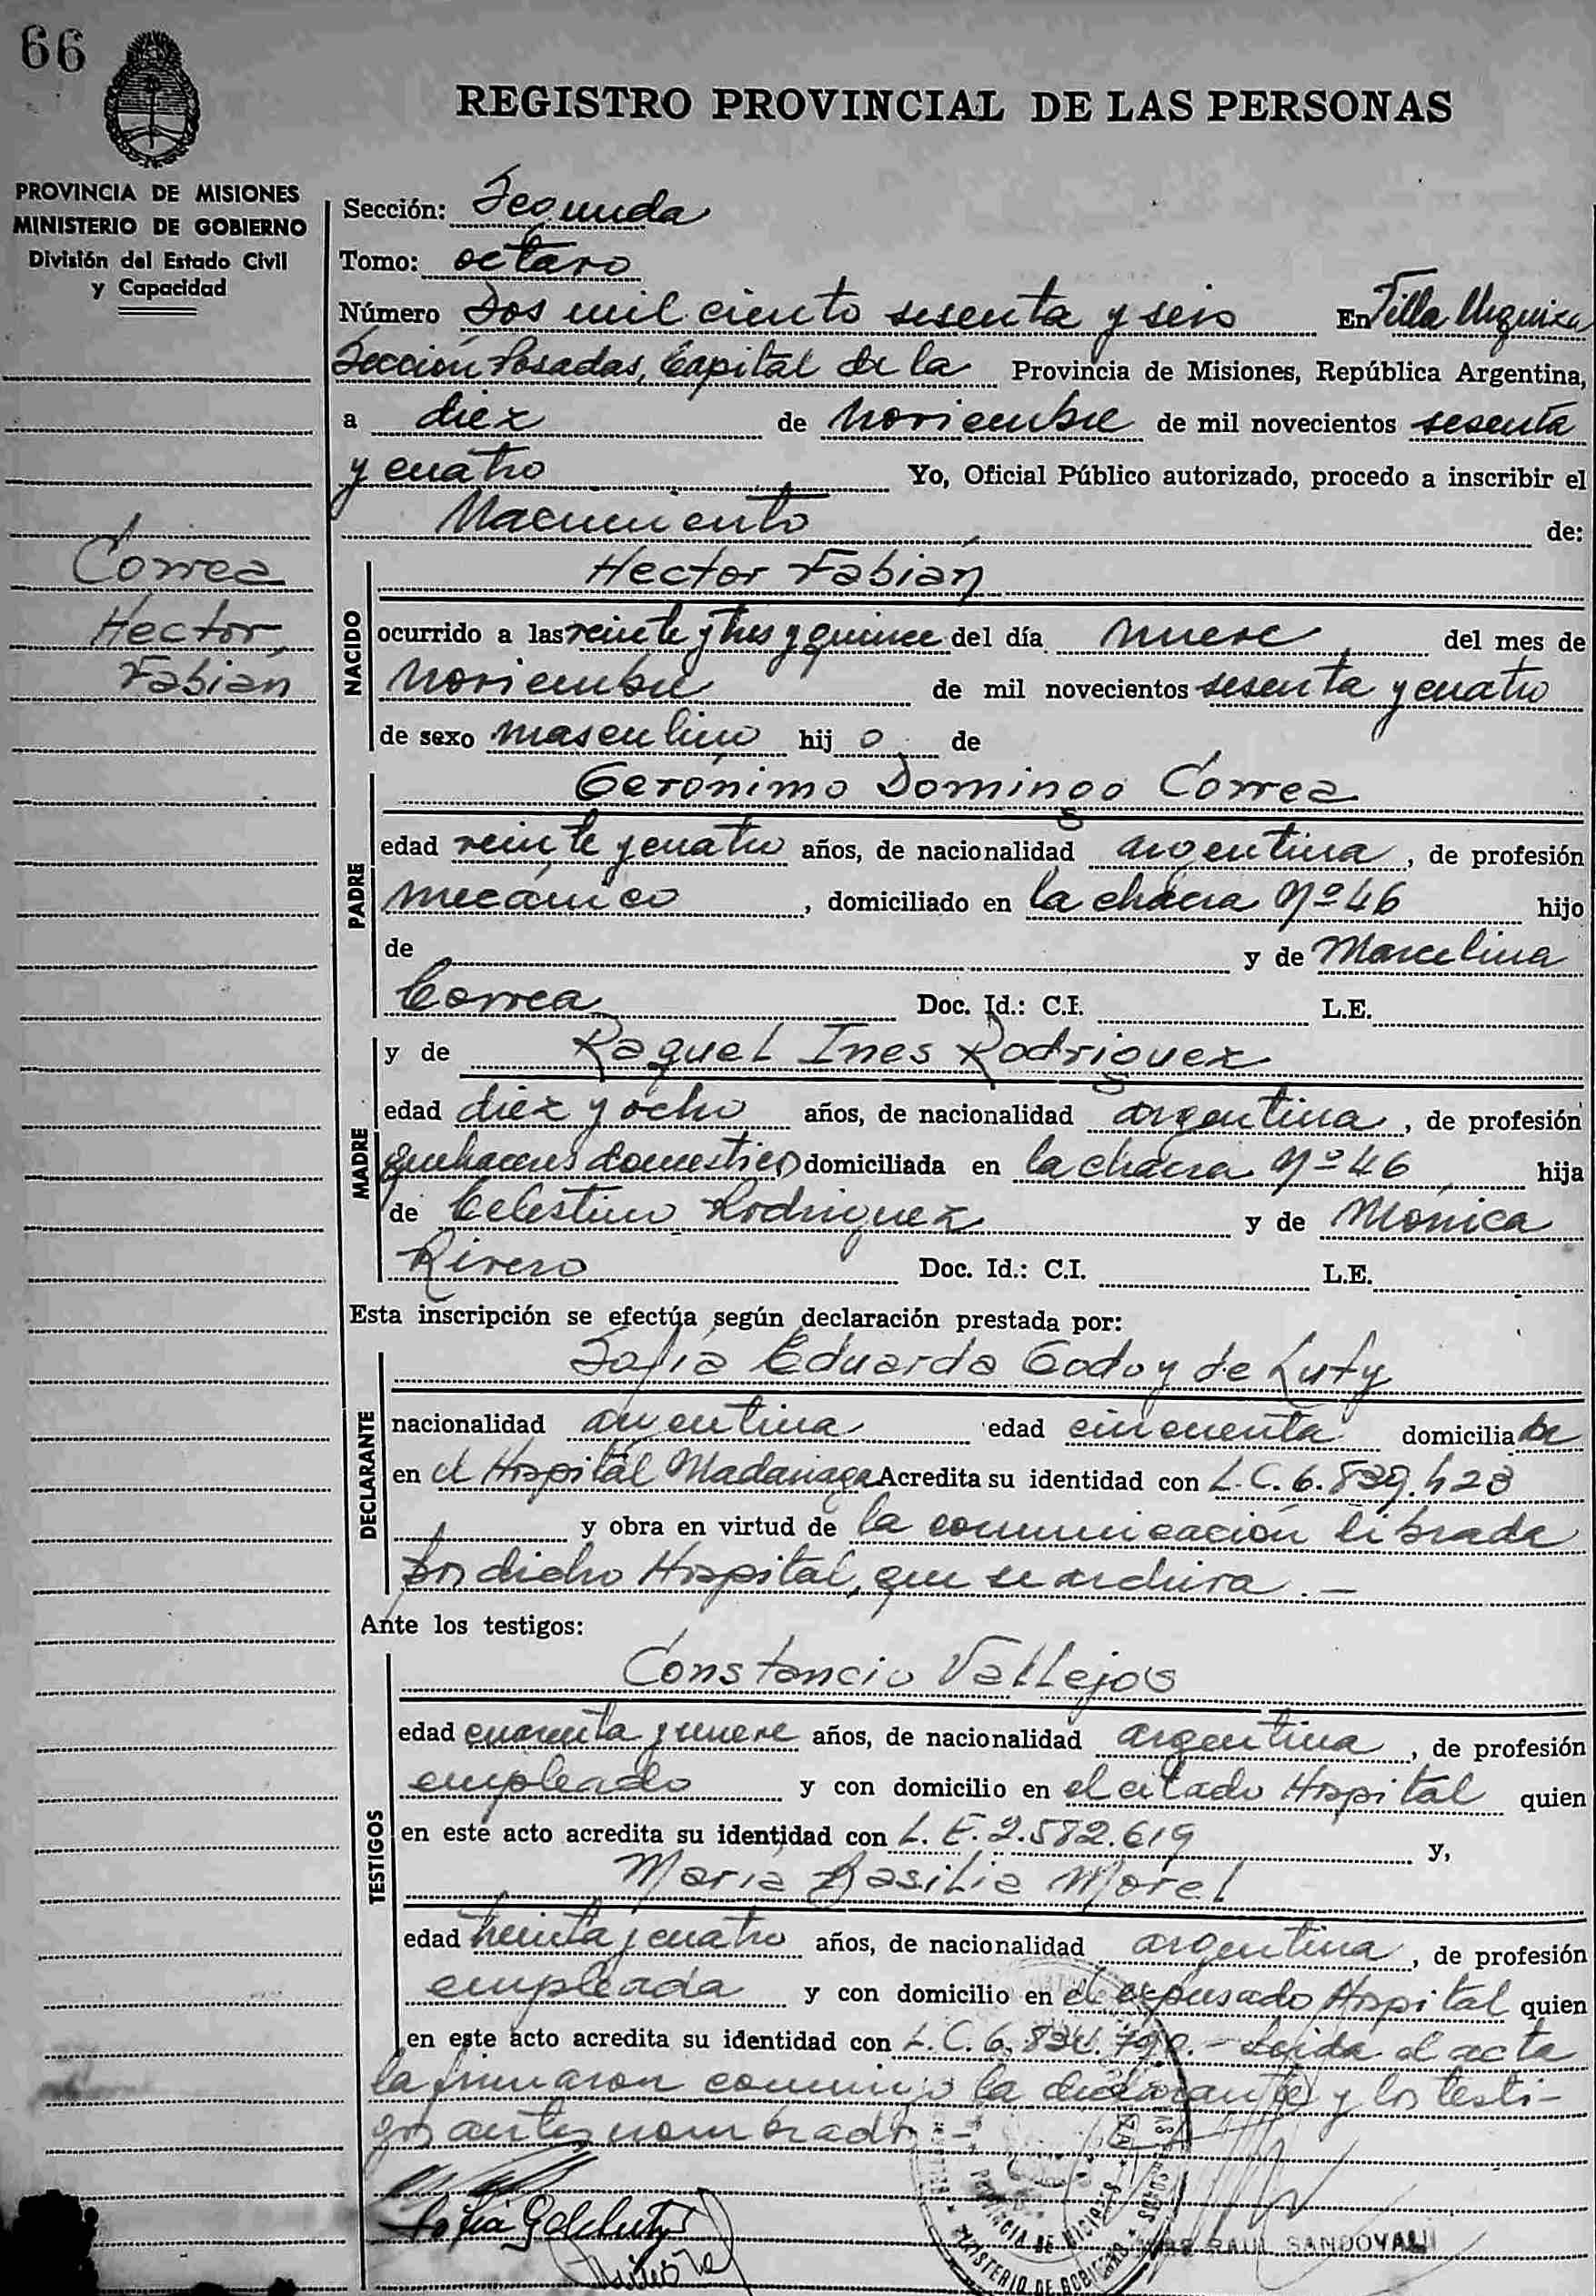 66
REGISTRO PROVINCIAL DE LAS PERSONAS
PROVINCIA DE MISIONES
MINISTERIO DE GOBIERNO
División del Estado Civil
y Capacidad
Sección: Segunda
Tomo: octavo
Número Dos mil ciento sesenta y seis En Villa Urquiza
Sección Posadas, Capital de la Provincia de Misiones, República Argentina,
a diez de noviembre de mil novecientos sesenta
y cuatro Yo, Oficial Público autorizado, procedo a inscribir el
Nacimiento de:
Correa
Hector
Fabián
NACIDO
Hector Fabián
ocurrido a las veinte y tres y quince del día nueve del mes de
noviembre de mil novecientos sesenta y cuatro
de sexo masculino hij o de
PADRE
Gerónimo Domingo Correa
edad veinte y cuatro años, de nacionalidad argentina, de profesión
mecánico, domiciliado en la chacra Nº 46 hijo
de y de Marcelina
Correa Doc. Id.: C.I. L.E.
MADRE
y de Raquel Ines Rodriguez
edad diez y ocho años, de nacionalidad argentina, de profesión
quehaceres domesticos domiciliada en la chacra Nº 46 hija
de Celestino Rodriguez y de Mónica
Rivero Doc. Id.: C.I. L.E.
Esta inscripción se efectúa según declaración prestada por:
DECLARANTE
Sofía Eduarda Godoy de Luty
nacionalidad argentina edad cincuenta domicilia da
en el Hospital Madariaga Acredita su identidad con L.C. 6.839.423
y obra en virtud de la comunicación librada
por dicho Hospital, que se archiva.-
Ante los testigos:
TESTIGOS
Constancio Vallejos
edad cuarenta y nueve años, de nacionalidad argentina, de profesión
empleado y con domicilio en el citado Hospital quien
en este acto acredita su identidad con L.E. 2.582.619 y,
María Basilia Morel
edad treinta y cuatro años, de nacionalidad argentina, de profesión
empleada y con domicilio en el expresado Hospital quien
en este acto acredita su identidad con L.C. 6. .- Leida el acta
la firmaron conmigo la declarante y los testi-
gos antes nombrados.-
PROVINCIA DE MISIONES
MINISTERIO DE GOBIERNO
RAUL SANDOVAL